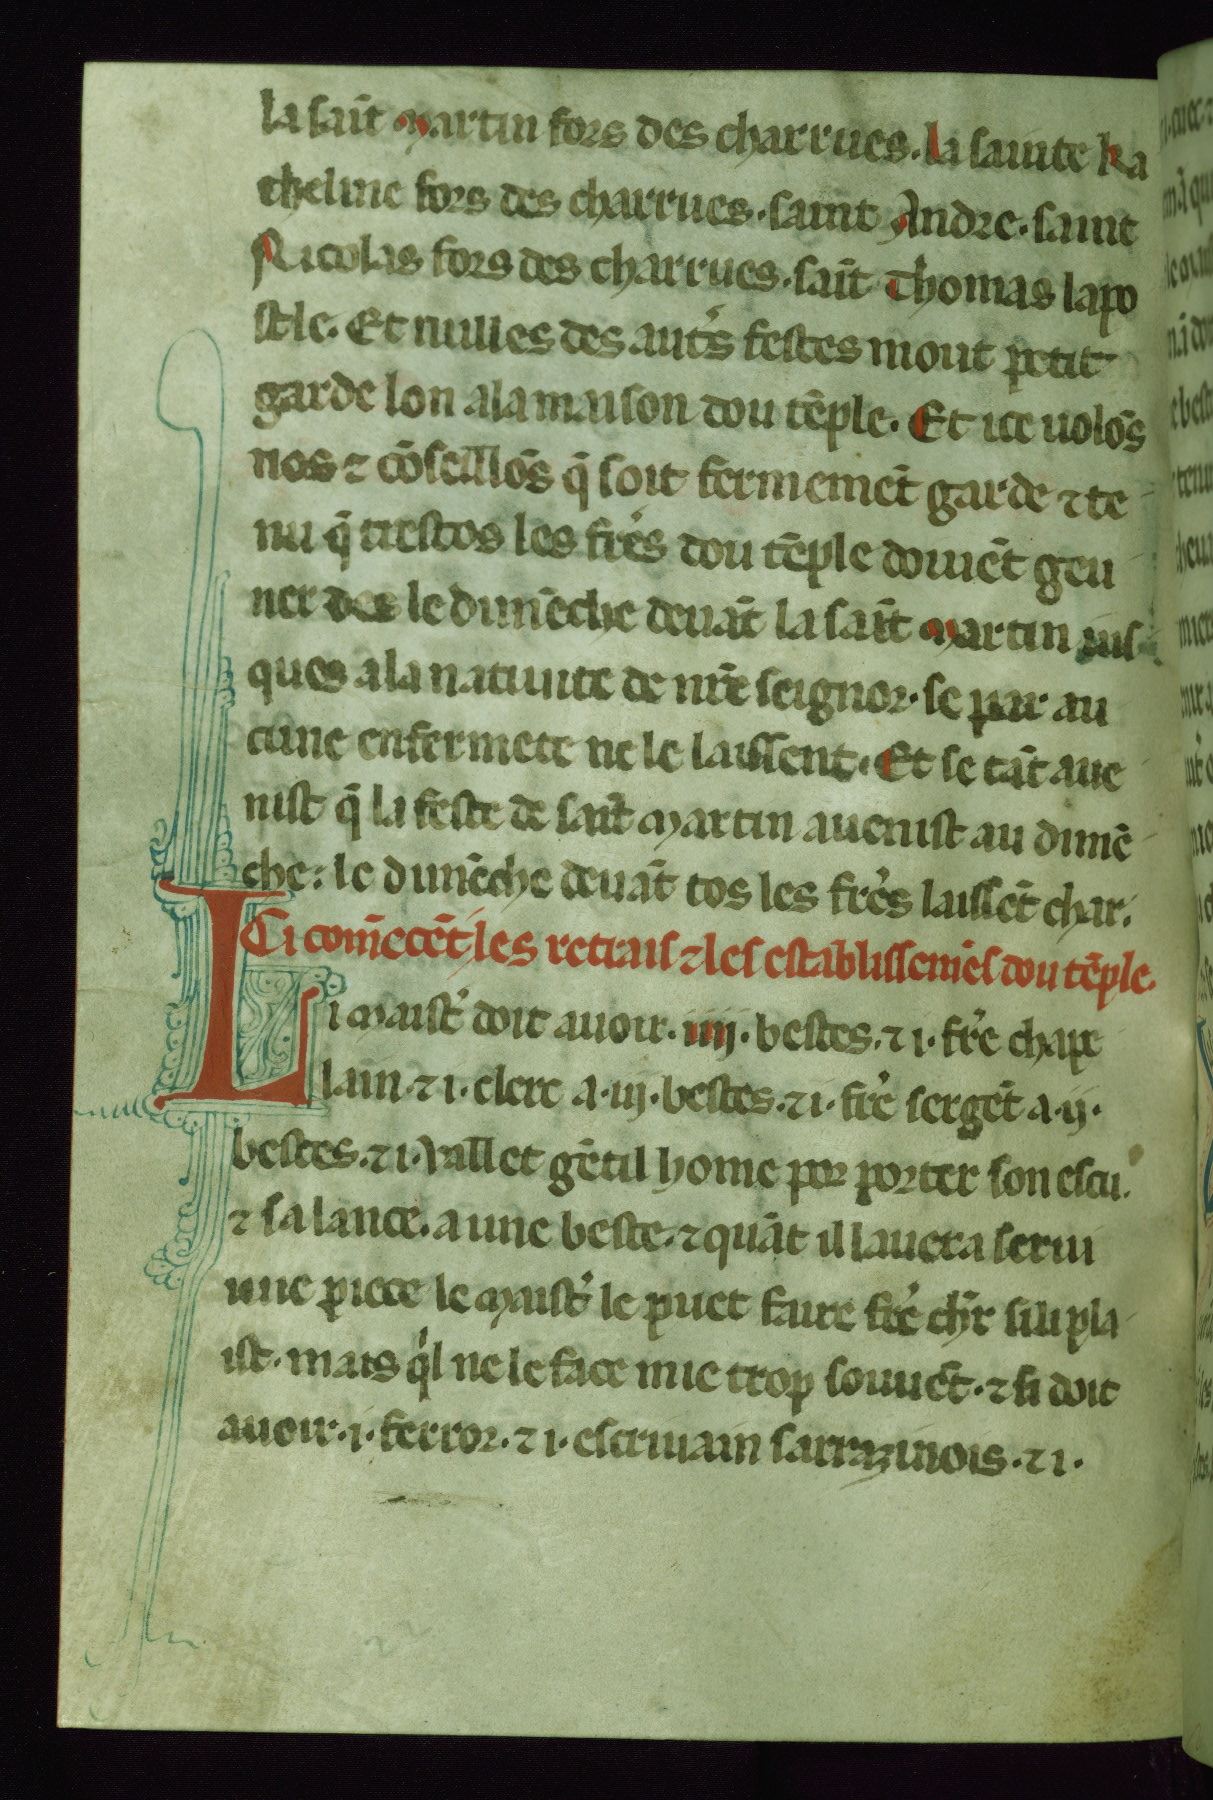 la sait̄ martin fors des charrues. la sainte ka
theline fors des charrues. saint Andre. saint
Nicolas fors des charrues. sait̄ Thomas lapo
stle. Et nulles des autˢs festes mout petit
garde lon a la maison dou tēple. Et ice uolōs
nos ⁊ cōseillōs q̄ soit fermemēt garde ⁊ te
nu q̄ trestos les frēs dou tēple doiuēt geu
ner des le dimēche deuāt la sait̄ martin ius
ques a la natiuite de nr̄e seignor. se par au
cune enfermete ne le laissent. Et se tāt aue
nist q̄ la feste de sait̄ martin auenist au dimē
che: le dimēche deuāt tos les frēs laissēt char.
Ci com̄ecēt les retrais ⁊ les establissemēs dou tēple.
Li maist̉ doit auoir .iiij. bestes. ⁊ .i. frē chape
lain. ⁊ .i. clerc a .iij. bestes. ⁊ .i. frē sergēt a .ij.
bestes. ⁊ .i. vallet gētil home por porter son escu.
⁊ sa lance. a une beste. ⁊ quāt il lauera serui
une piece le maist̉ le puet faire frē chr̄ si li pla
ist. mais q̉l ne le face mie trop souuēt. ⁊ si doit
auoir .i. ferror. ⁊ .i. escriuain sarrazinois. ⁊ .i.